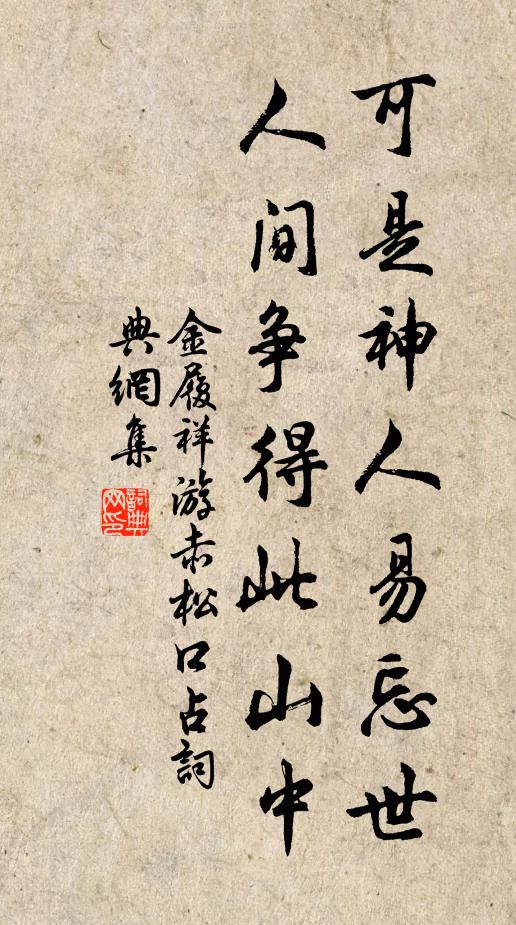 可是神人易忘世
人间争得此山中
金履祥游赤松口占詞
典網集
詞典
网印